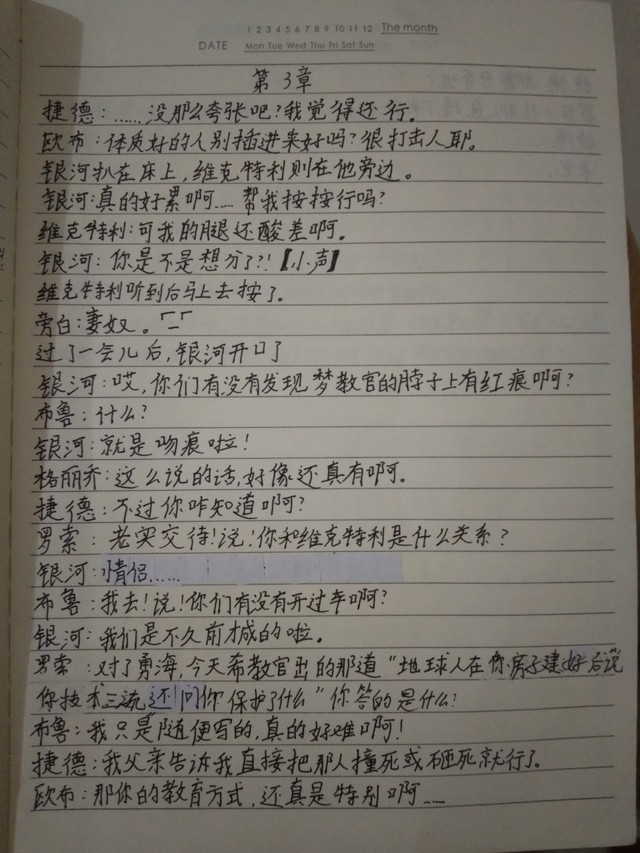 1 2 3 4 5 6 7 8 9 10 11 12 The month
DATE Mon Tue Wed Thu Fri Sat Sun
第3章
捷德:……没那么夸张吧?我觉得还行。
欧布:体质好的人别插进来好吗?很打击人耶。
银河趴在床上,维克特利则在他旁边。
银河:真的好累啊…… 帮我按按行吗?
维克特利:可我的腿还酸差啊。
银河:你是不是想分了?!【小声】
维克特利听到后马上去按了。
旁白:妻奴。
过了一会儿后,银河开口了
银河:哎,你们有没有发现梦教官的脖子上有红痕啊?
布鲁:什么?
银河:就是吻痕啦!
格丽乔:这么说的话,好像还真有啊。
捷德:不过你咋知道啊?
罗索:老实交待!说!你和维克特利是什么关系?
银河:情侣……
布鲁:我去!说!你们有没有开过车啊?
银河:我们是不久前才成的啦。
罗索:对了勇海,今天希教官出的那道“地球人在你房子建好后说
你技术三流还问你保护了什么”你答的是什么?
布鲁:我只是随便写的,真的好难啊!
捷德:我父亲告诉我直接把那人撞死或砸死就行了。
欧布:那你的教育方式,还真是特别啊……